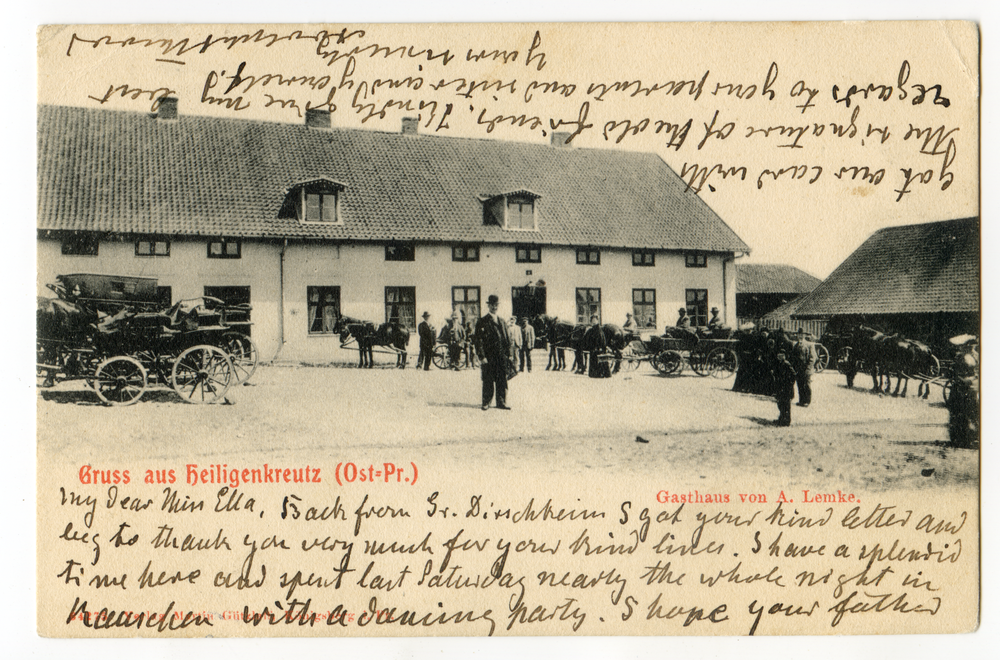 Gruss aus Heiligenkreutz (Ost=Pr.)
Gasthaus von A. Lemke.
My dear Miss Ella, Back from Gr. Dirschkeim I got your kind letter and
beg to thank you very much for your kind lines. I have a splendid
time here and spent last Saturday nearly the whole night in
with a dancing party. I hope your father
got our card with
the signature of the old friends. Kindly give my best
regards to your parents and sister and yourself.
Yours